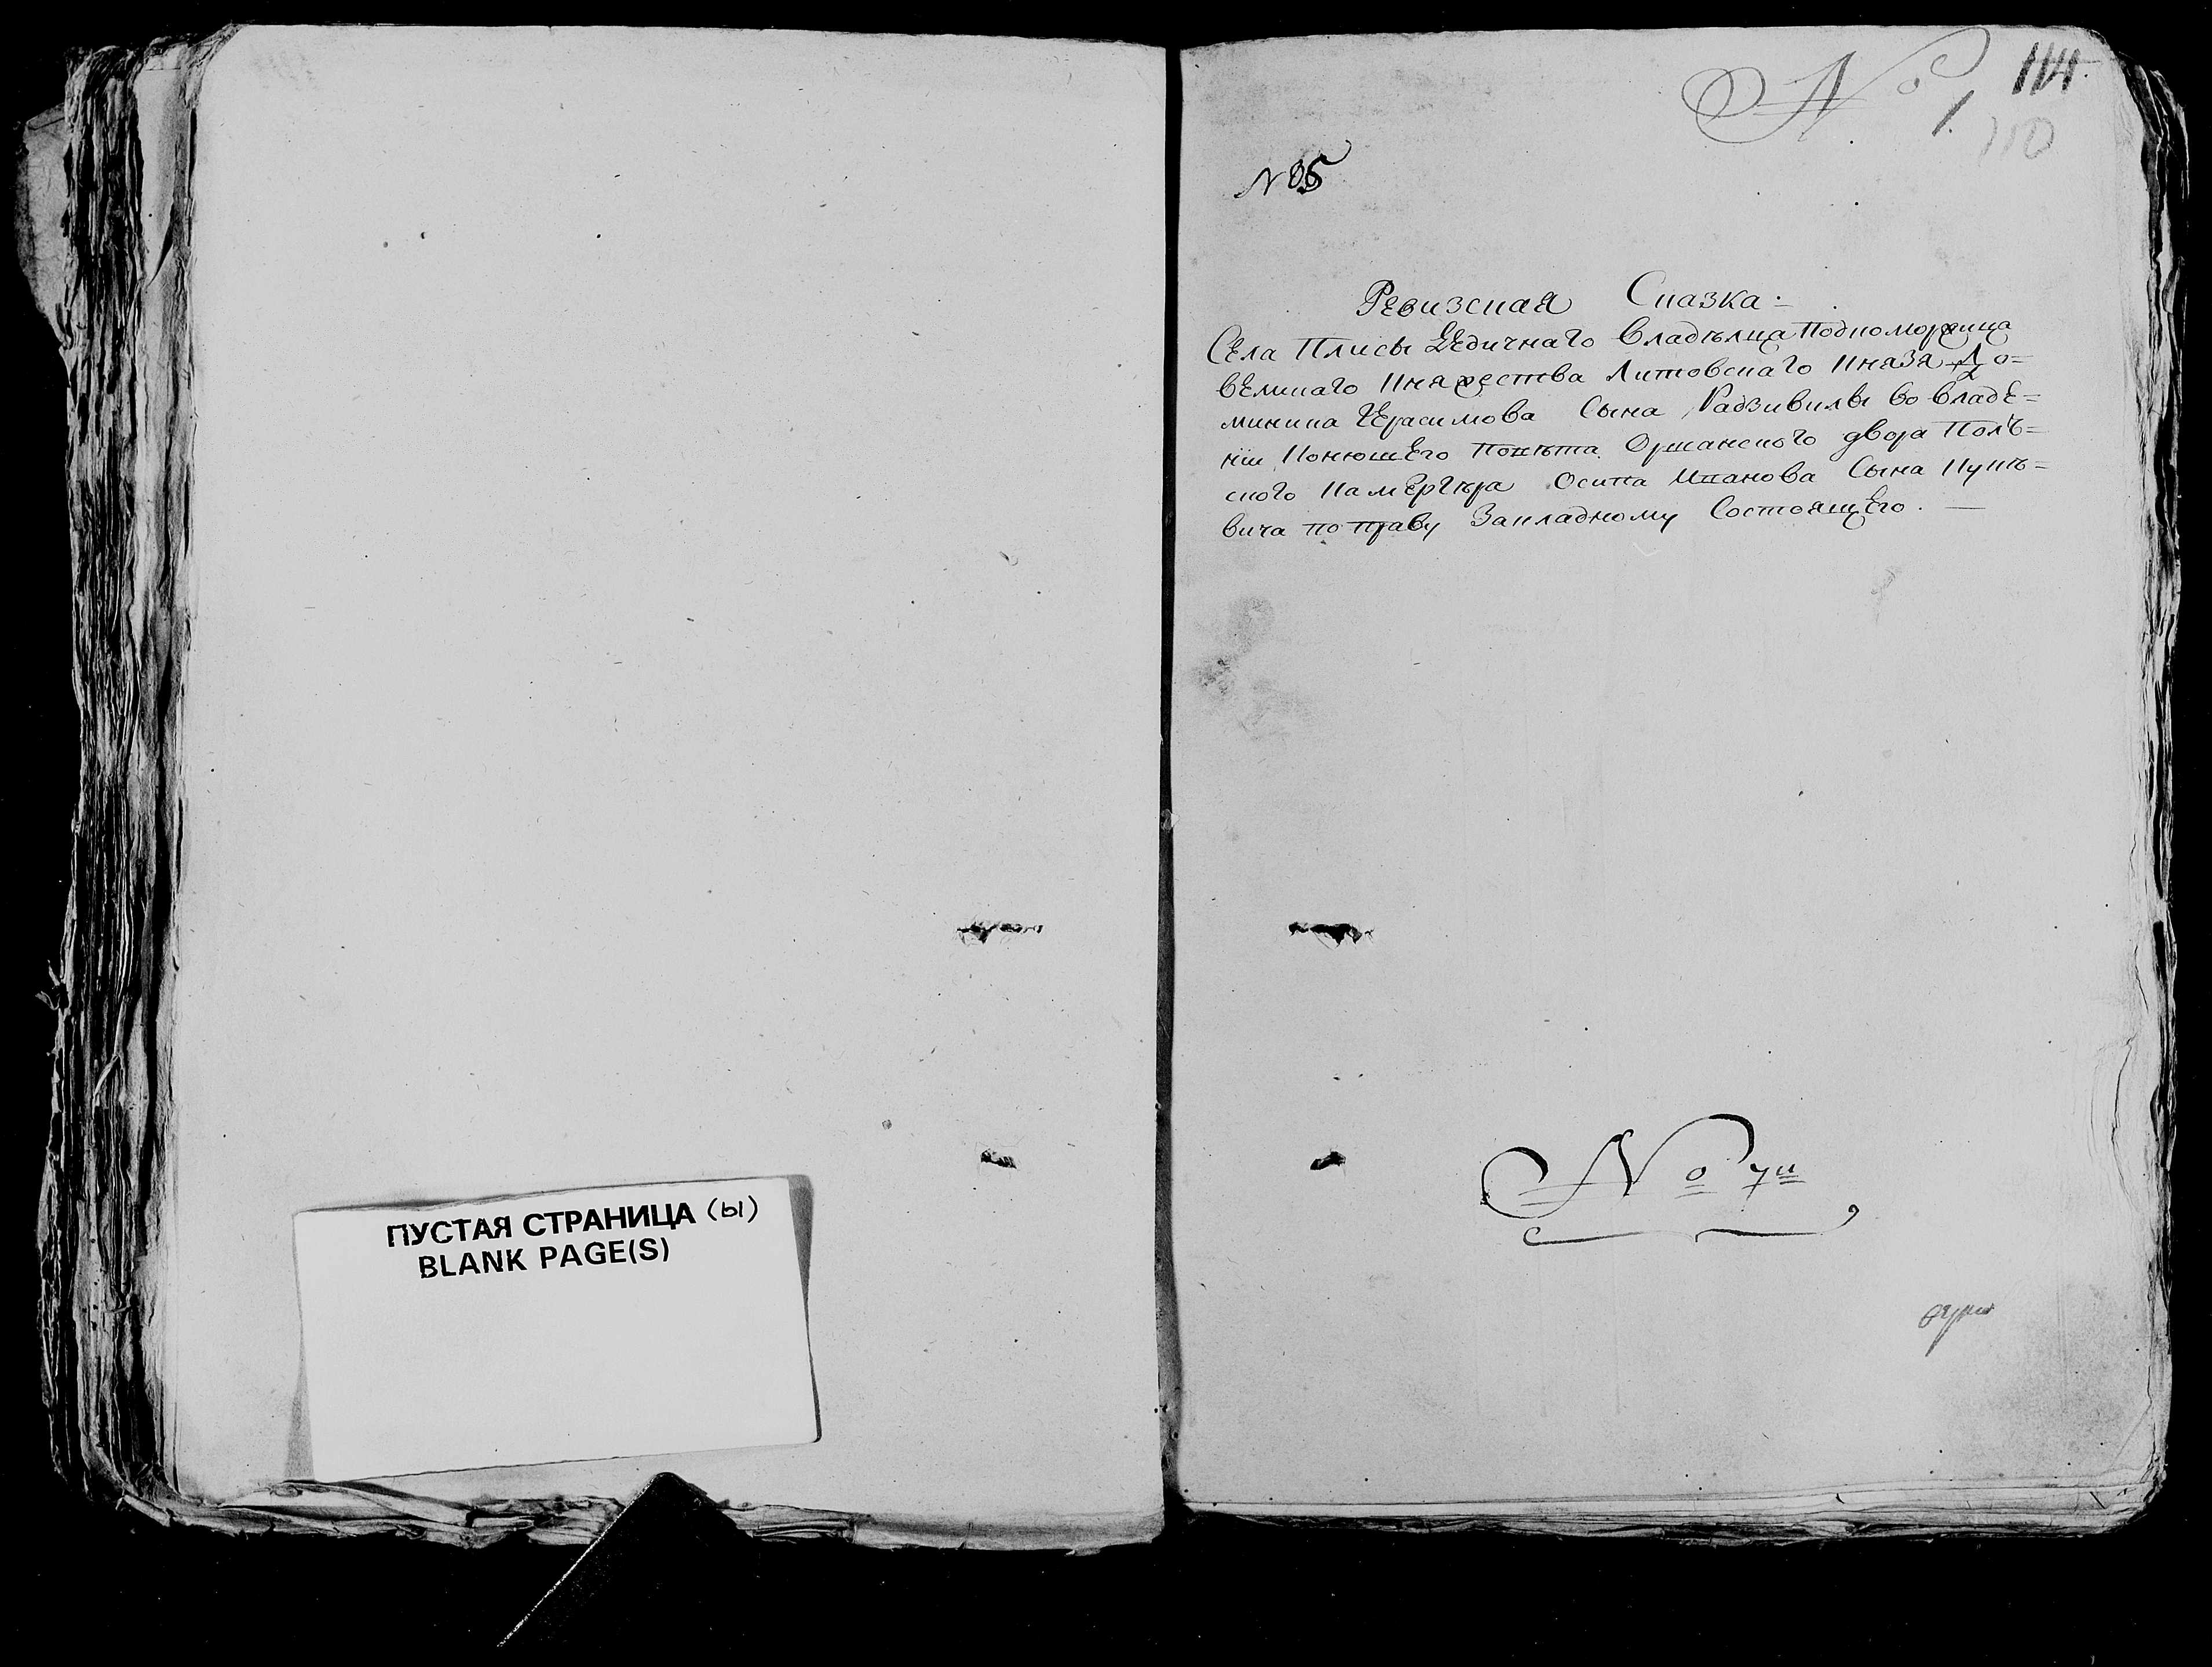 ПУСТАЯ СТРАНИЦА (Ы)
BLANK PAGE(S)
№ 1.
114
110
№ 35
Ревизская Сказка:
Села Плисы Дедичнаго Владѣлца Подкоморжица
Великаго Княжества Литовскаго Князя До=
миника Герасимова Сына Радзивила во владе=
нїи Конюшего Повѣта Оршанского двора Поль=
ского Камергѣра Осипа Иванова Сына
вича по праву Закладному Состоящего. —
№ 7й